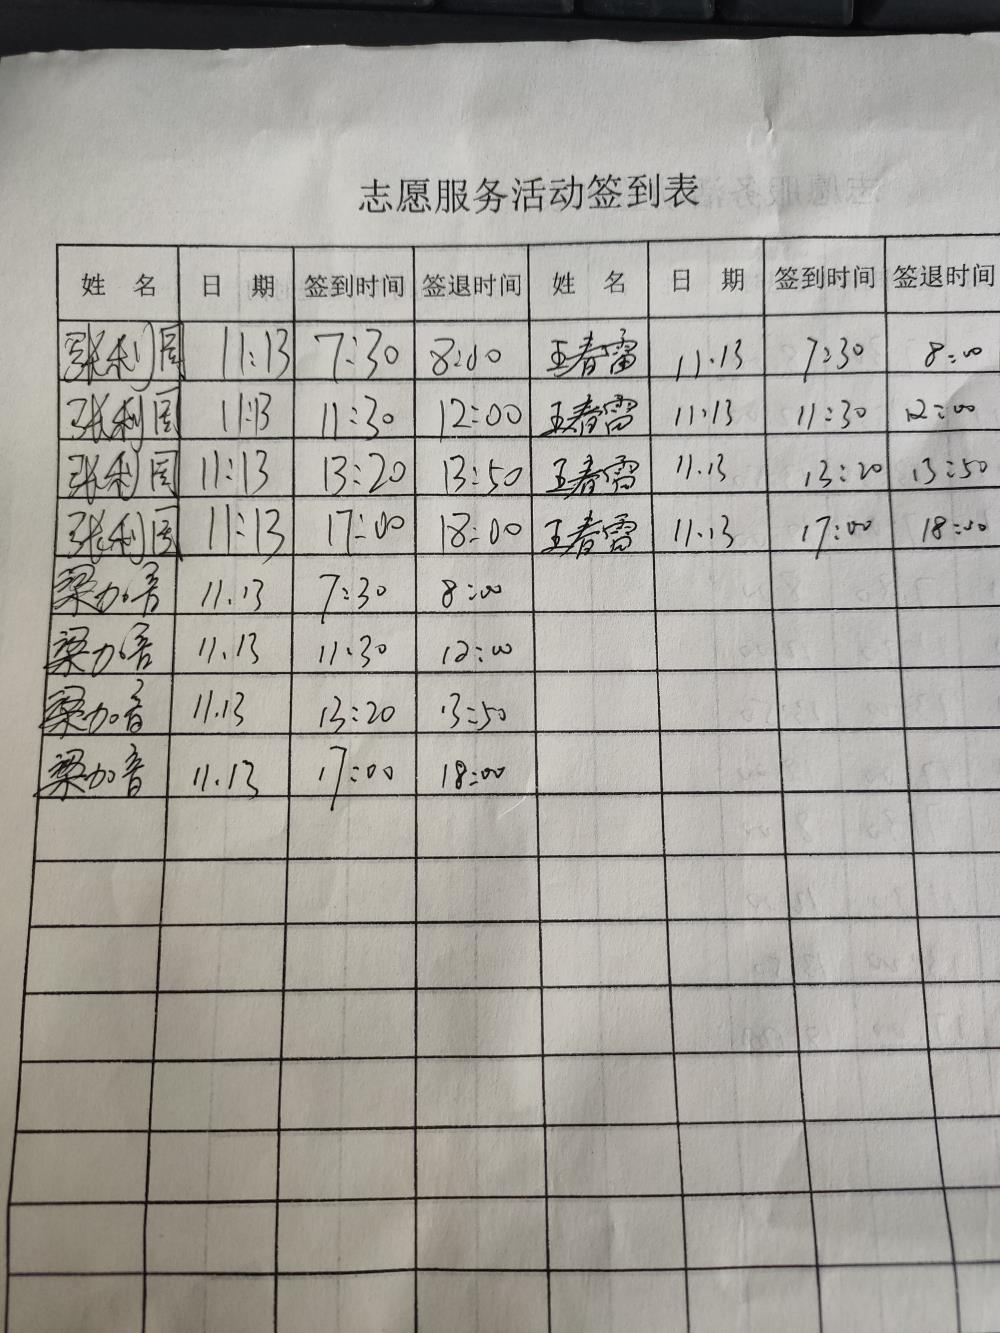 志愿服务活动签到表
姓 名 日 期 签到时间 签退时间 姓 名 日 期 签到时间 签退时间
张利国 11:13 7:30 8:00 王春雷 11.13 7:30 8:00
张利国 11:13 11:30 12:00 王春雷 11.13 11:30 12:00
张利国 11:13 13:20 13:50 王春雷 11.13 13:20 13:50
张利国 11:13 17:00 18:00 王春雷 11.13 17:00 18:00
梁加音 11.13 7:30 8:00
梁加音 11.13 11:30 12:00
梁加音 11.13 13:20 13:50
梁加音 11.13 17:00 18:00